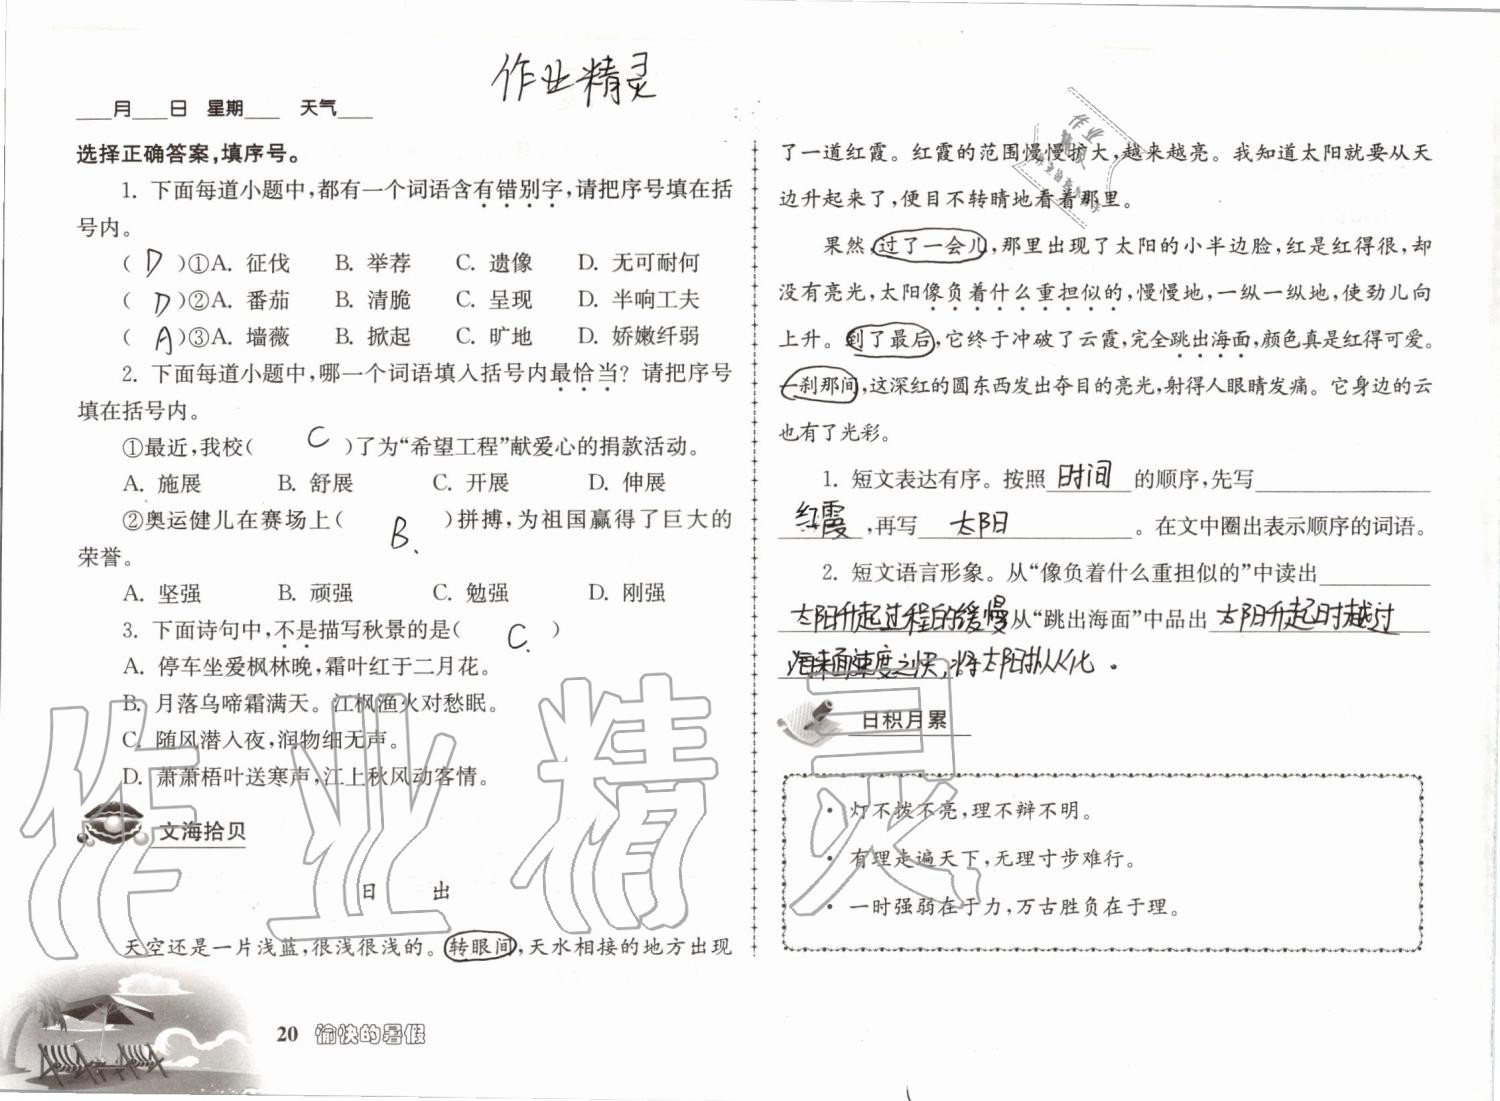 作业精灵
月 日 星期 天气
选择正确答案,填序号。
1. 下面每道小题中,都有一个词语含有错别字,请把序号填在括
号内。
( D )①A. 征伐 B. 举荐 C. 遗像 D. 无可耐何
( D )②A. 番茄 B. 清脆 C. 呈现 D. 半响工夫
( A )③A. 墙薇 B. 掀起 C. 旷地 D. 娇嫩纤弱
2. 下面每道小题中,哪一个词语填入括号内最恰当？请把序号
填在括号内。
①最近,我校( C )了为“希望工程”献爱心的捐款活动。
A. 施展 B. 舒展 C. 开展 D. 伸展
②奥运健儿在赛场上( B. )拼搏,为祖国赢得了巨大的
荣誉。
A. 坚强 B. 顽强 C. 勉强 D. 刚强
3. 下面诗句中,不是描写秋景的是( C. )
A. 停车坐爱枫林晚,霜叶红于二月花。
B. 月落乌啼霜满天。江枫渔火对愁眠。
C. 随风潜入夜,润物细无声。
D. 萧萧梧叶送寒声,江上秋风动客情。
文海拾贝
日 出
天空还是一片浅蓝,很浅很浅的。转眼间,天水相接的地方出现
20 愉快的暑假
了一道红霞。红霞的范围慢慢扩大,越来越亮。我知道太阳就要从天
边升起来了,便目不转睛地看着那里。
果然,过了一会儿,那里出现了太阳的小半边脸,红是红得很,却
没有亮光,太阳像负着什么重担似的,慢慢地,一纵一纵地,使劲儿向
上升。到了最后,它终于冲破了云霞,完全跳出海面,颜色真是红得可爱。
一刹那间,这深红的圆东西发出夺目的亮光,射得人眼睛发痛。它身边的云
也有了光彩。
1. 短文表达有序。按照 时间 的顺序,先写
红霞 ,再写 太阳 。在文中圈出表示顺序的词语。
2. 短文语言形象。从“像负着什么重担似的”中读出
太阳升起过程的缓慢 从“跳出海面”中品出 太阳升起时越过
海来面速度之快,将太阳拟人化。
日积月累
• 灯不拨不亮,理不辩不明。
• 有理走遍天下,无理寸步难行。
• 一时强弱在于力,万古胜负在于理。
作业精灵